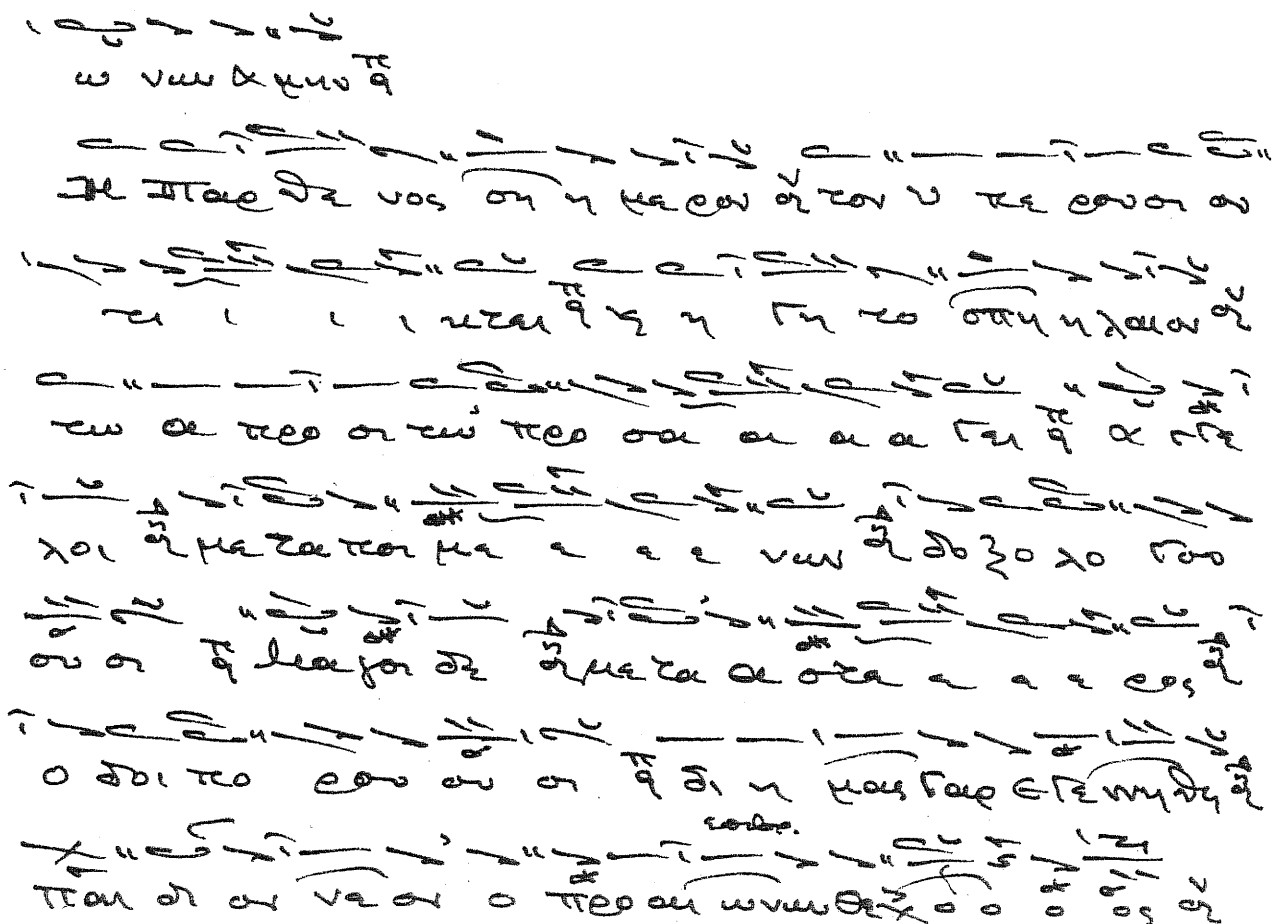 ω νων α μην
Η Παρ θε νος ση η με ρον τον υ πε ρου σι ον
τι ι ι ι κται ϗ η Γη το σπη η λαι ον
τω α προ σι τω προ σα α α α γει αγ γε
λοι με τα ποι με ε ε ε νων δο ξο λο γου
ου σι Μα γοι δε με τα α στε ε ε ε ρος
ο δοι πο ρου ου σι δι η μας γαρ ε γε ννη θη
παι δι ον νε ον ο προ αι ω νων Θε ο ο ο ος